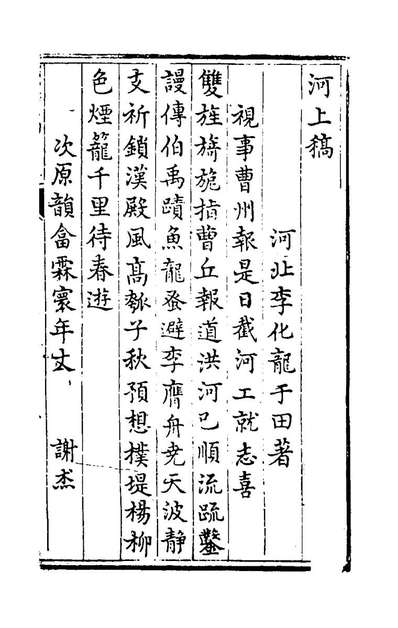 河上稿
河北李化龍于田著
視事曹州報是日截河工就志喜
雙旌旖旎指曹丘報道洪河已順流疏鑿
謾傳伯禹蹟魚龍登避李膺舟堯天波静
支祈鎖漢殿風髙瓠子秋預想㯷堤楊栁
色煙籠千里待春遊
次原韻畣霖寰年丈 謝杰